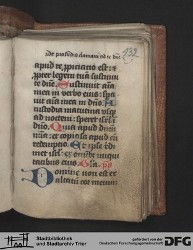 132
apud te ppiciatio est: et
ppter legem tuam sustinui
te dñe. Sustinuit aīa
mea in verbo eius: spe
rauit aīa mea in dño. A
custodia matutina usqz
ad noctem: speret isrl in
dño. Quia apud dñm
mīa: et copiosa apud eū
redempcio. Et ipse redi
met isrl: ex omībus iniqui
tatibus eius.
Domine non est ex
altatum cor meum
Stadtbibliothek
und Stadtarchiv Trier
gefördert von der
Deutschen Forschungsgemeinschaft
DFG